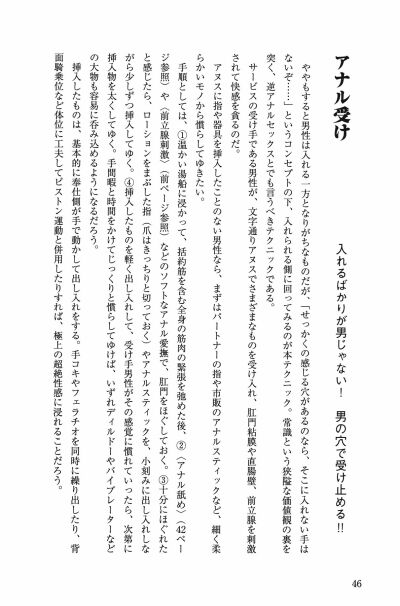 アナル受け
入れるばかりが男じゃない！　男の穴で受け止める!!
ややもすると男性は入れる一方となりがちなものだが、「せっかくの感じる穴があるのなら、そこに入れない手は
ないぞ……」というコンセプトの下、入れられる側に回ってみるのが本テクニック。常識という狭隘な価値観の裏を
突く、逆アナルセックスとでも言うべきテクニックである。
サービスの受け手である男性が、文字通りアヌスでさまざまなものを受け入れ、肛門粘膜や直腸壁、前立腺を刺激
されて快感を貪るのだ。
アヌスに指や器具を挿入したことのない男性なら、まずはパートナーの指や市販のアナルスティックなど、細く柔
らかいモノから慣らしてゆきたい。
手順としては、①温かい湯船に浸かって、括約筋を含む全身の筋肉の緊張を弛めた後、②〈アナル舐め〉（42ペー
ジ参照）や〈前立腺刺激〉（前ページ参照）などのソフトなアナル愛撫で、肛門をほぐしておく。③十分にほぐれた
と感じたら、ローションをまぶした指（爪はきっちりと切っておく）やアナルスティックを、小刻みに出し入れしな
がら少しずつ挿入してゆく。④挿入したものを軽く出し入れして、受け手男性がその感覚に慣れていったら、次第に
挿入物を太くしてゆく。手間暇と時間をかけてじっくりと慣らしてゆけば、いずれディルドーやバイブレーターなど
の大物も容易に呑み込めるようになるだろう。
挿入したものは、基本的に奉仕側が手で動かして出し入れをする。手コキやフェラチオを同時に繰り出したり、背
面騎乗位など体位に工夫してピストン運動と併用したりすれば、極上の超絶性感に浸れることだろう。
46